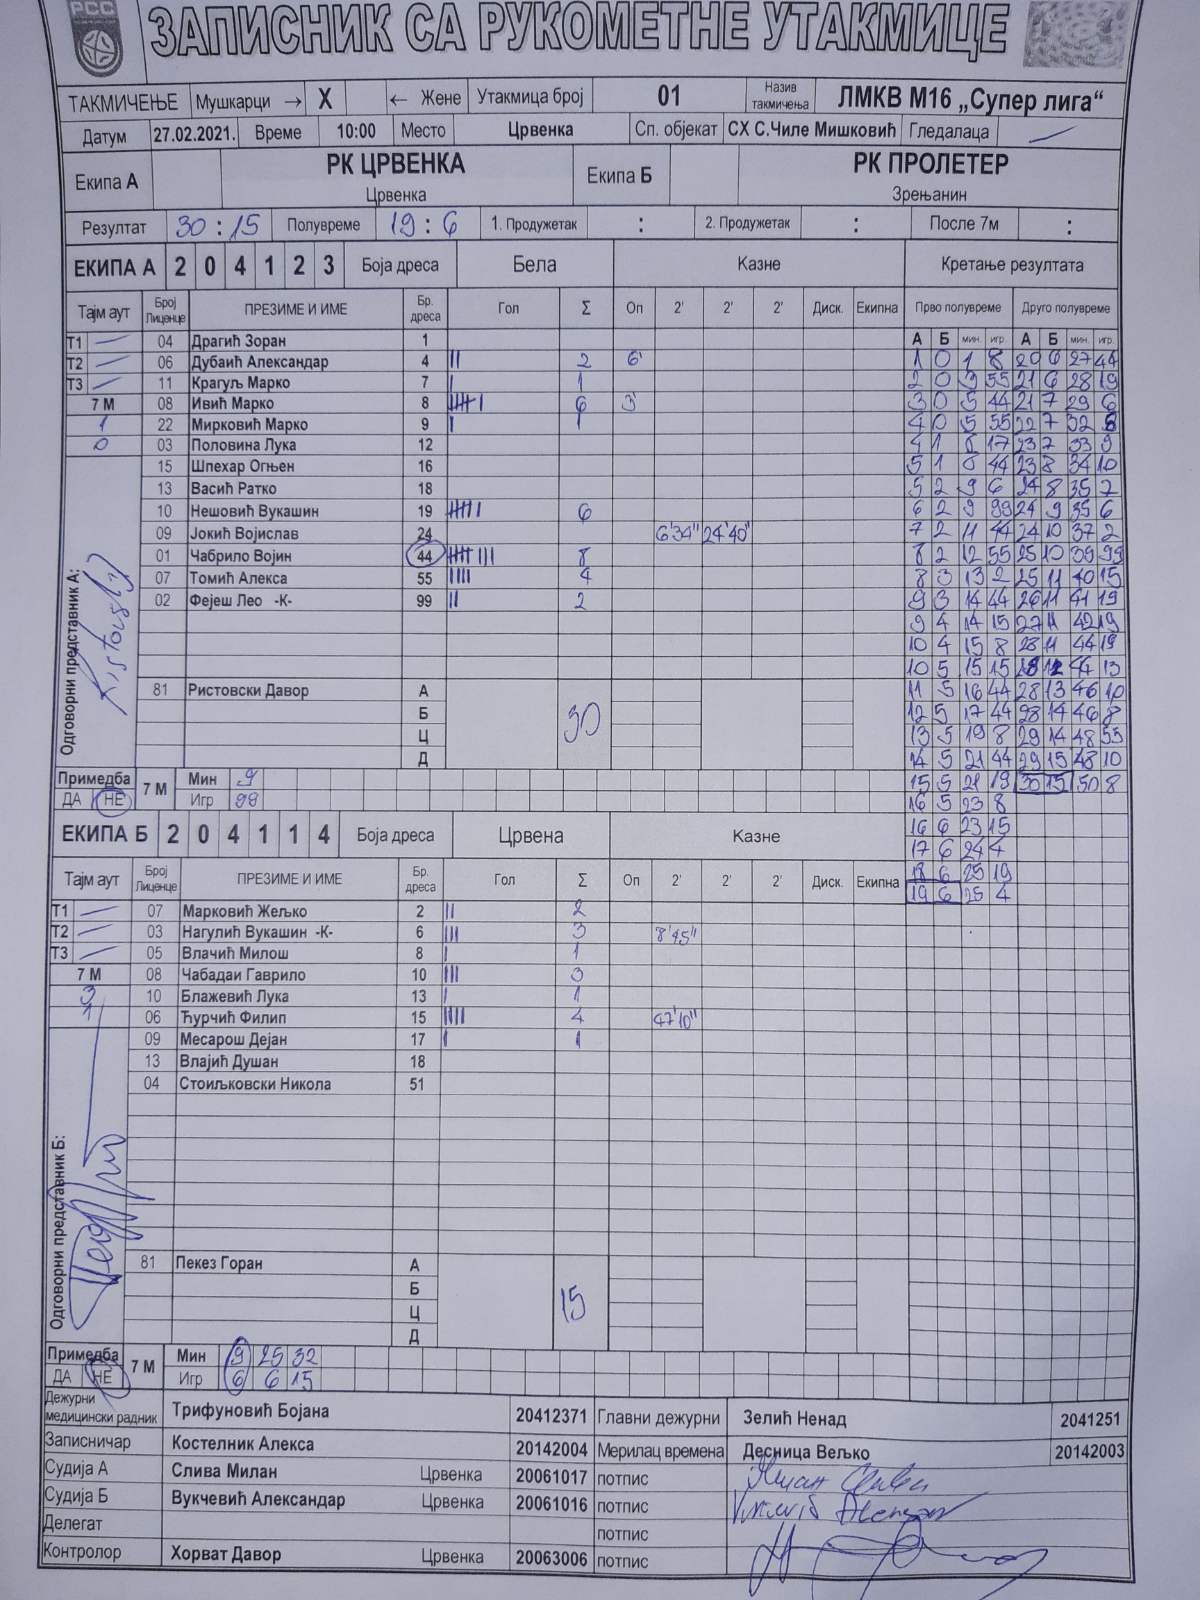 РСС
ЗАПИСНИК СА РУКОМЕТНЕ УТАКМИЦЕ
ТАКМИЧЕЊЕ Мушкарци → X ← Жене Утакмица број 01 Назив такмичења ЛМКВ М16 „Супер лига“
Датум 27.02.2021. Време 10:00 Место Црвенка Сп. објекат СХ С.Чиле Мишковић Гледалаца
Екипа А РК ЦРВЕНКА Црвенка Екипа Б РК ПРОЛЕТЕР Зрењанин
Резултат 30 : 15 Полувреме 19 : 6 1. Продужетак : 2. Продужетак : После 7м :
ЕКИПА А 2 0 4 1 2 3 Боја дреса Бела Казне Кретање резултата
Тајм аут Број Лиценце ПРЕЗИМЕ И ИМЕ Бр. дреса Гол Σ Оп 2' 2' 2' Диск. Екипна Прво полувреме Друго полувреме
Т1 04 Драгић Зоран 1 А Б мин. игр. А Б мин. игр.
Т2 06 Дубаић Александар 4 || 2 6' 1 0 1 8 20 6 27 44
Т3 11 Крагуљ Марко 7 | 1 2 0 3 55 21 6 28 19
7 М 08 Ивић Марко 8 6 3' 3 0 5 44 21 7 29 6
1 22 Мирковић Марко 9 | 1 4 0 5 55 22 7 32 8
0 03 Половина Лука 12 4 1 8 17 23 7 33 9
15 Шпехар Огњен 16 5 1 8 44 23 8 34 10
13 Васић Ратко 18 5 2 9 6 24 8 35 7
10 Нешовић Вукашин 19 6 6 2 9 99 24 9 35 6
09 Јокић Војислав 24 6'34" 24'40" 7 2 11 44 24 10 37 2
01 Чабрило Војин 44 8 8 2 12 55 25 10 39 99
07 Томић Алекса 55 |||| 4 8 3 13 2 25 11 40 15
02 Фејеш Лео -К- 99 || 2 9 3 14 44 26 11 41 19
9 4 14 15 27 11 42 19
10 4 15 8 28 11 44 19
10 5 15 15 28 12 44 13
81 Ристовски Давор А 11 5 16 44 28 13 46 10
Б 30 12 5 17 44 28 14 46 8
Ц 13 5 19 8 29 14 48 55
Д 14 5 21 44 29 15 48 10
Одговорни представник А:
Примедба 7 М Мин 9 15 5 21 19 30 15 50 8
ДА НЕ Игр 99 16 5 23 8
ЕКИПА Б 2 0 4 1 1 4 Боја дреса Црвена Казне 16 6 23 15
17 6 24 4
Тајм аут Број Лиценце ПРЕЗИМЕ И ИМЕ Бр. дреса Гол Σ Оп 2' 2' 2' Диск. Екипна 18 6 25 19
19 6 25 4
Т1 07 Марковић Жељко 2 || 2
Т2 03 Нагулић Вукашин -К- 6 ||| 3 8'45"
Т3 05 Влачић Милош 8 | 1
7 М 08 Чабадаи Гаврило 10 ||| 3
3 10 Блажевић Лука 13 | 1
1 06 Ћурчић Филип 15 |||| 4 47'10"
09 Месарош Дејан 17 | 1
13 Влајић Душан 18
04 Стоиљковски Никола 51
Одговорни представник Б:
81 Пекез Горан А
Б 15
Ц
Д
Примедба 7 М Мин 9 25 32
ДА НЕ Игр 6 6 15
Дежурни медицински радник Трифуновић Бојана 20412371 Главни дежурни Зелић Ненад 2041251
Записничар Костелник Алекса 20142004 Мерилац времена Десница Вељко 20142003
Судија А Слива Милан Црвенка 20061017 потпис
Судија Б Вукчевић Александар Црвенка 20061016 потпис
Делегат потпис
Контролор Хорват Давор Црвенка 20063006 потпис